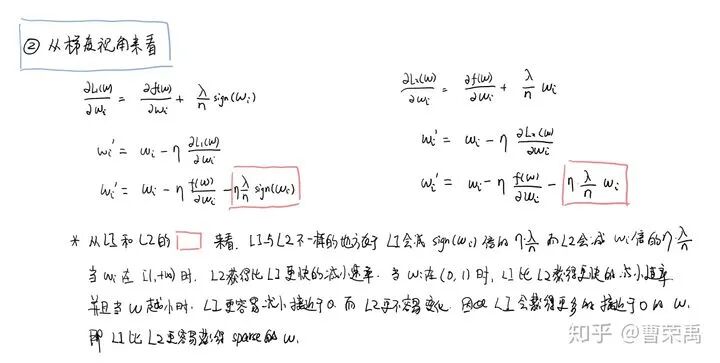 ② 从梯度视角来看
∂L₁(w)/∂wᵢ = ∂f(w)/∂wᵢ + λ/n sign(wᵢ)
wᵢ' = wᵢ - η ∂L₁(w)/∂wᵢ
wᵢ' = wᵢ - η f(w)/∂wᵢ - η λ/n sign(wᵢ)
∂L₂(w)/∂wᵢ = ∂f(w)/∂wᵢ + λ/n wᵢ
wᵢ' = wᵢ - η ∂L₂(w)/∂wᵢ
wᵢ' = wᵢ - η f(w)/∂wᵢ - η · λ/n wᵢ
* 从L1和L2的 来看, L1与L2不一样的地方在于L1会减sign(wᵢ)倍的η·λ/n 而L2会减wᵢ倍的η·λ/n
当wᵢ在(1,+∞)时, L2获得比L1更快的减小速率. 当wᵢ在(0,1)时, L1比L2获得更快的减小速率
并且当w越小时, L1更容易减小接近于0. 而L2更不容易变化. 因此L1会获得更多的接近于0的w.
即L1比L2更容易获得sparse的w.
知乎 @曹荣禹